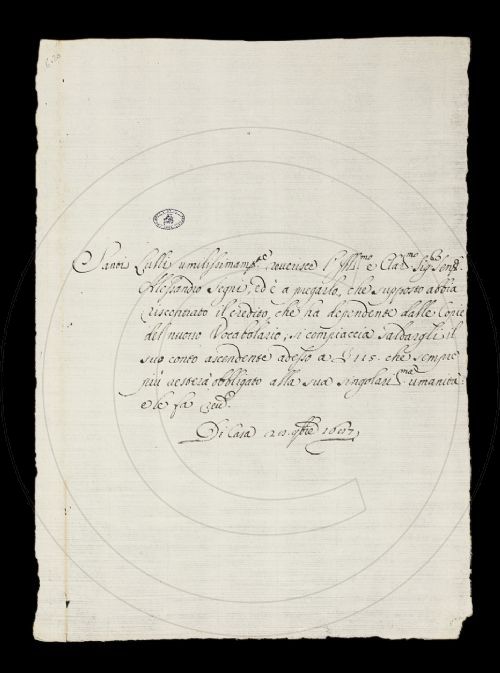 Santi Lulli umilissimam.te reverisce l'Ill.mo e Clar.mo Sig.r Sen.r
Alessandro Segni, ed è a pregarlo, che supposto abbia
riscontrato il credito che ha dependente dalle Copie
del nuovo Vocabolario, si compiaccia saldargli il
suo conto ascendente adesso a 115. che sempre
più resterà obbligato alla sua singolariss.ma umanità
e le fa rev.
Di Casa 20 9bre 1687